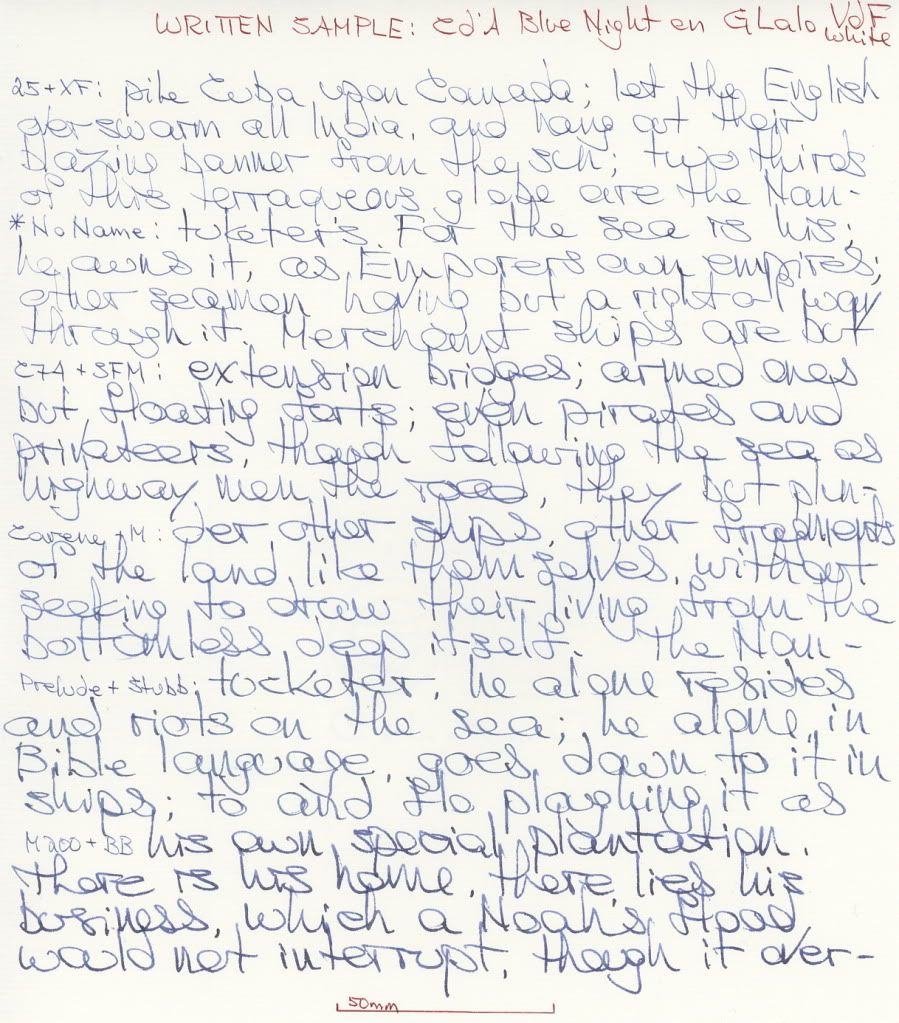 WRITTEN SAMPLE: Cd'A Blue Night on G Lalo VdF
White
25+XF: pile Cuba upon Canada; let the English
overswarm all India, and hang out their
blazing banner from the sun; two thirds
of this terraqueous globe are the Nan-
*NoName: tucketer's. For the sea is his;
he owns it, as Emperors own empires;
other seamen having but a right of way
through it. Merchant ships are but
C74 + SFM: extension bridges; armed ones
but floating forts; even pirates and
privateers, though following the sea as
highway men the road, they but plun-
Carene + M: der other ships, other fragments
of the land like themselves, without
seeking to draw their living from the
bottomless deep itself. The Nan-
Prelude + Stubb: tucketer, he alone resides
and riots on the sea; he alone, in
Bible language, goes down to it in
ships; to and fro ploughing it as
M200 + BB his own special plantation.
There is his home, there lies his
business, which a Noah's flood
would not interrupt, though it over-
50mm